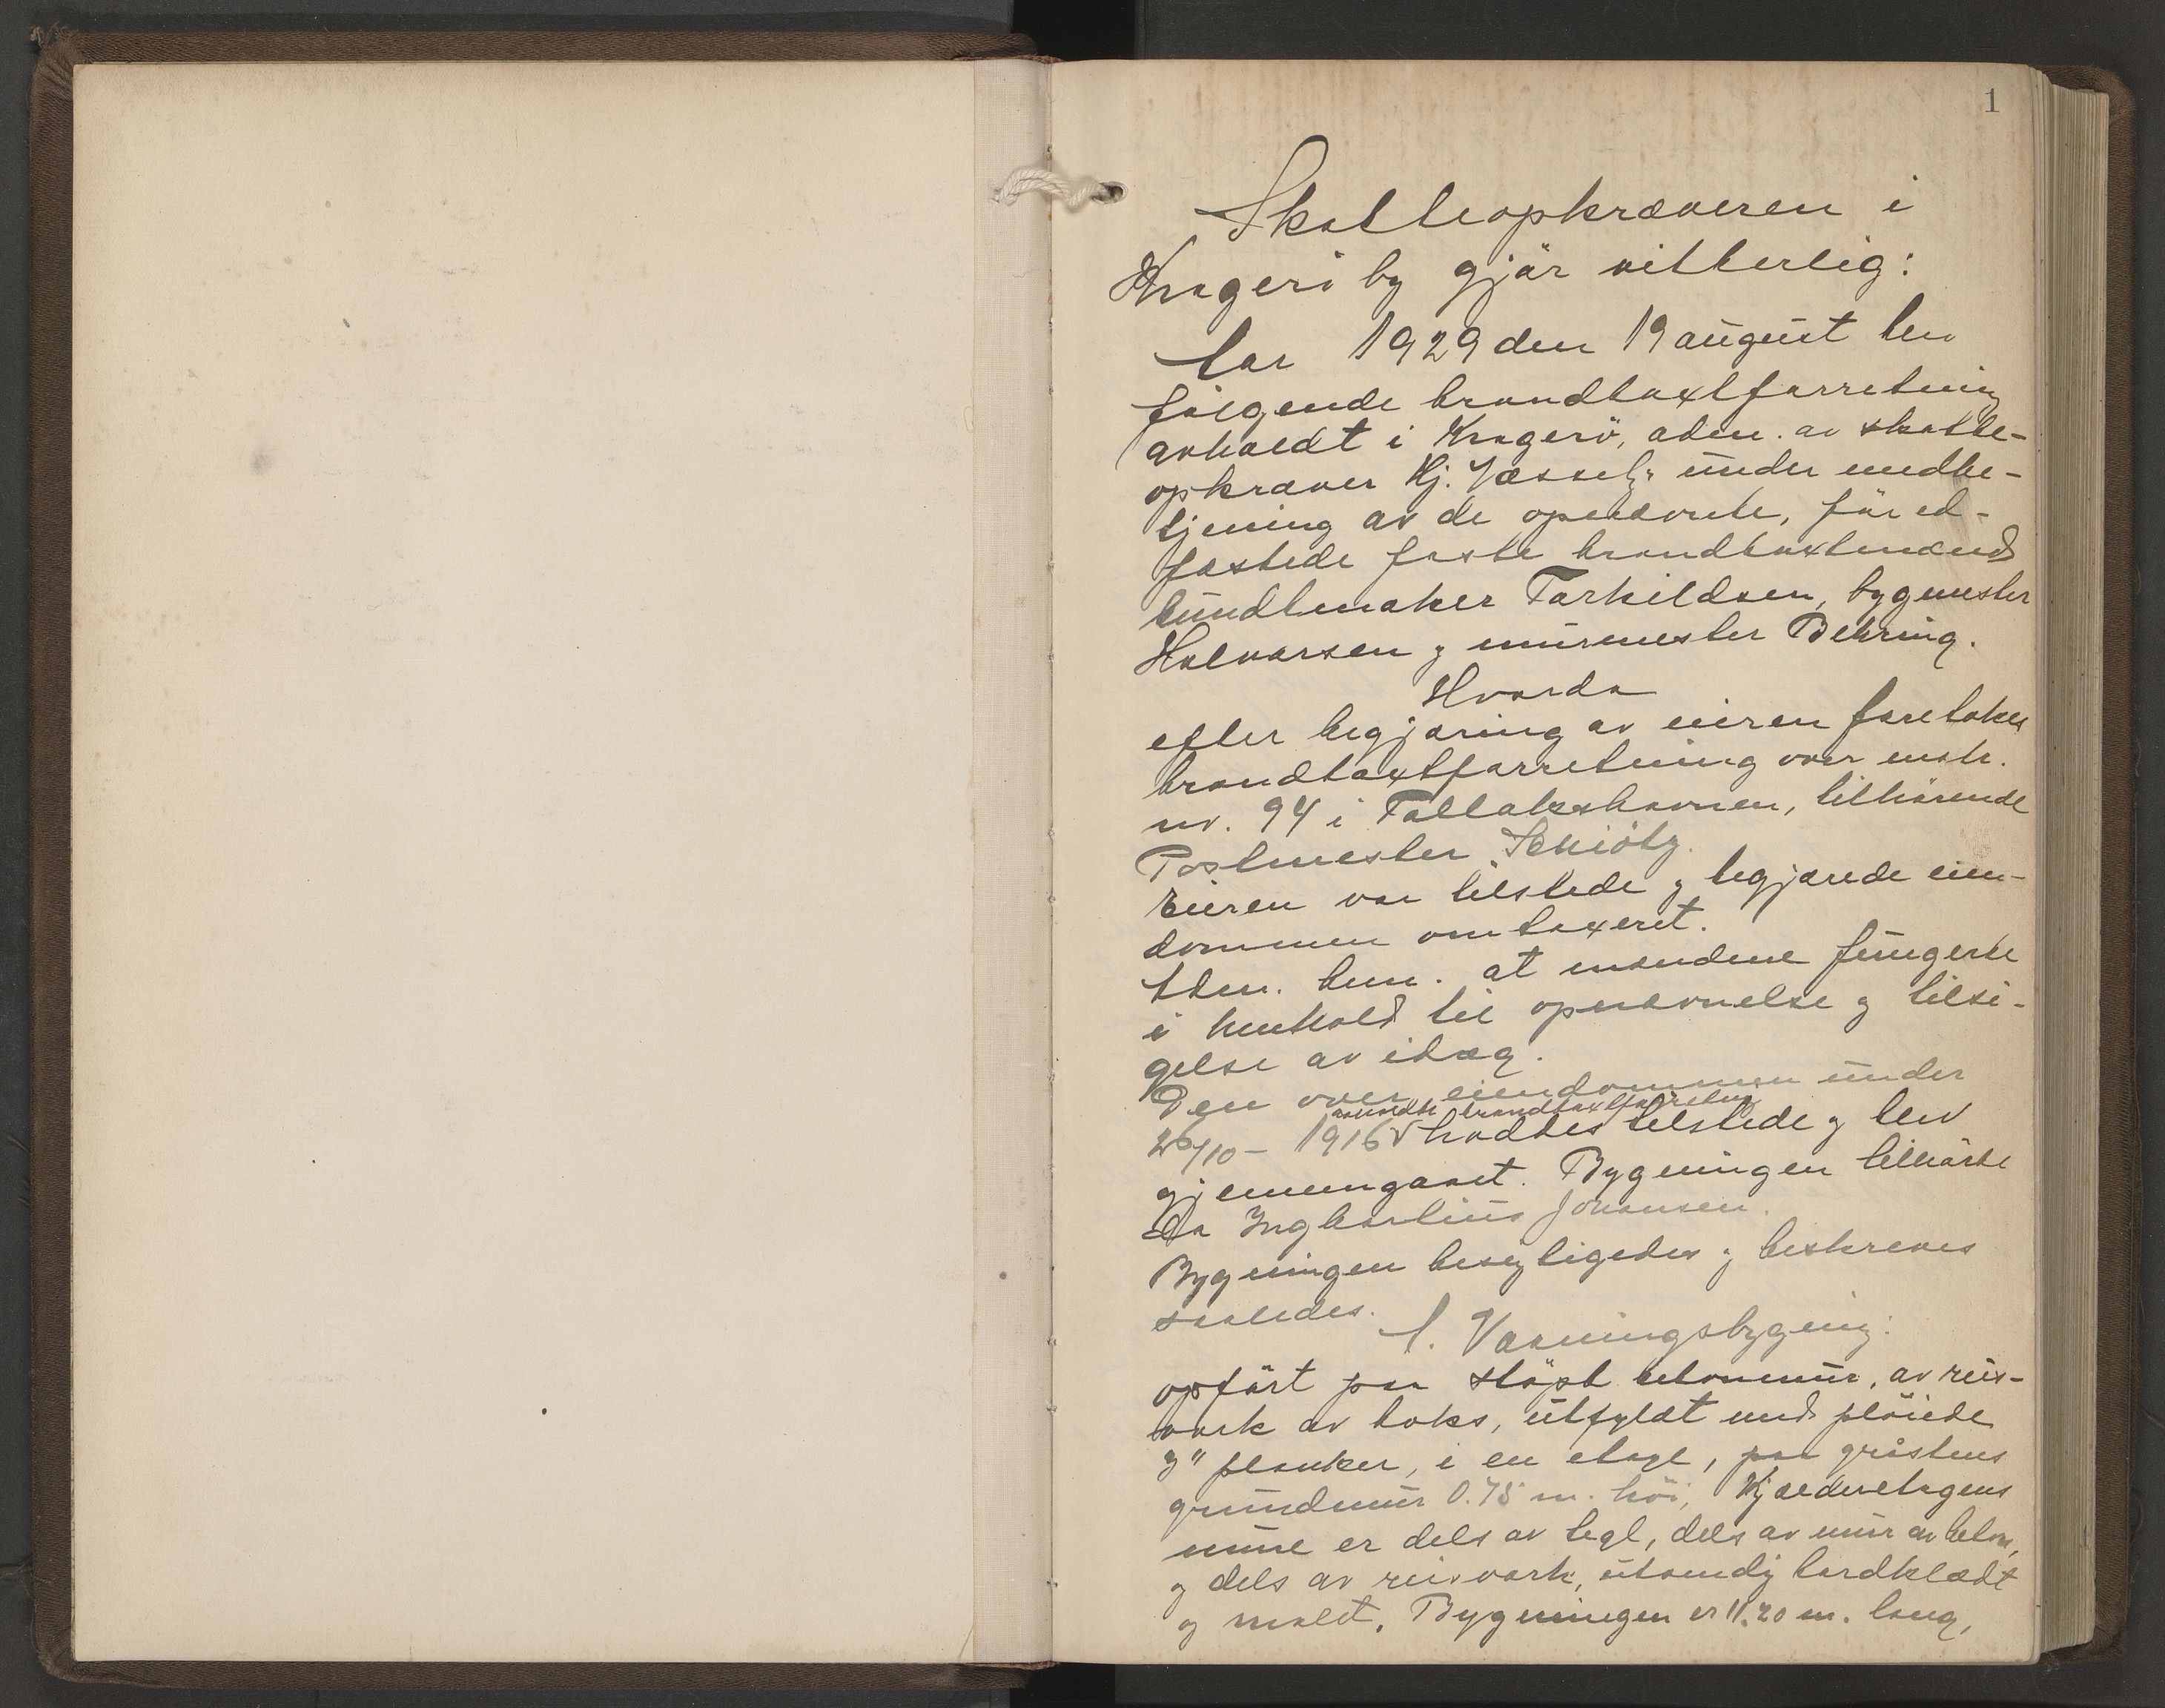 1
Skatteopkræveren i
Kragerö by gjör vitterlig:
Aar 1929 den 19 august blev
følgende brandtaxtforretning
avholdt i Kragerö, adm. av skatte-
opkræver Hj. under medbe-
tjening av de opnævnte, för ed-
fæstede faste brandtaxtmænd
bundtmaker Torkildsen, bygmester
Halvorsen og murmester Behring.
Hvorda
efter begjæring av eieren foretokes
brandtaxtforretning over matr.
nr. 94 i Tallakshavnen, tilhörende
Postmester Schiötz.
Eieren var tilstede og begjærede eien-
dommen omtaxeret.
Adm. bem. at mændene fungerte
i henhold til opnævnelse og tilsi-
gelse av idag.
Den over eiendommen under
26/10 - 1916 avholdte brandtaxtforretning hadtes tilstede og blev
gjennemgaaet. Bygningen tilhörte
da Ingbartius Johansen.
Bygningen besigtigedes og beskreves
saaledes.
A. Vaaningsbygning:
opfört paa stöpt betonmur, av reis-
værk av boks, utfyldt med plöiede
3" planker, i en etage, paa gråstens
grundmur 0.75 m. höi, Kjælderetagens
mure er dels av tegl, dels av mur av beton,
og dels av reisværk, utvendig bordklædt
og malet. Bygningen er 11.20 m. lang,